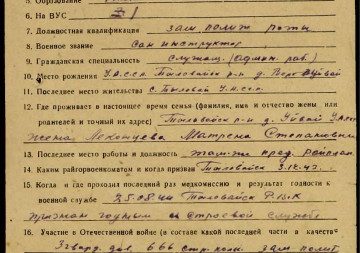 5. Образование
6. На ВУС 31
7. Должностная квалификация зам полит роты
8. Военное звание Сан инструктор
9. Гражданская специальность служащ. (админ. раб.)
10. Место рождения У.А.С.С.Р. Тыловайский р-н д. Верх
11. Последнее место жительства с. Тыловай У.А.С.С.Р.
12. Где проживает в настоящее время семья (фамилия, имя и отчество жены или
родителей и точный их адрес) Тыловайский р-н
жена Лекомцева Матрена Степановна
13. Последнее место работы и должность
14. Каким райгорвоенкоматом и когда призван Тыловайск. 3.12.42 г.
15. Когда и где проходил последний раз медкомиссию и результат годности к
военной службе 25.08.44 Тыловайск. РВК
признан годным к строевой службе
16. Участие в Отечественной войне (в составе какой последней части и в качестве
3 гвард. див. 666 стр. полк. зам. полит.